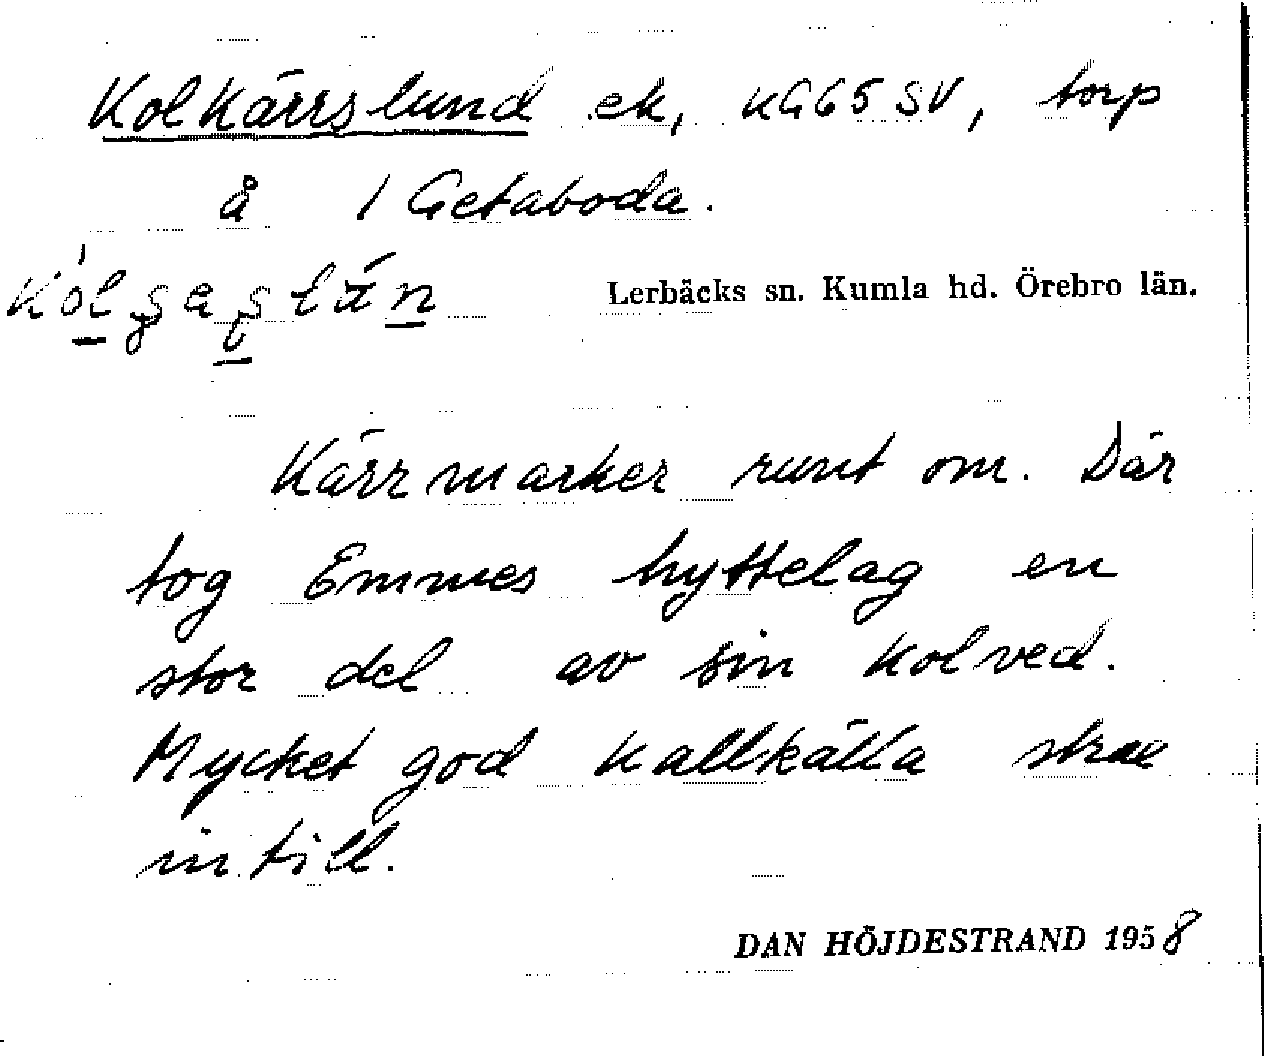 Kolkärrslund ek, KG65SV, torp
å 1 Getaboda.
Lerbäcks sn. Kumla hd. Örebro län.
Kärrmarker runt om. Där
tog Emmes hyttelag en
stor del av sin kolved.
Mycket god kallkälla strax
intill.
DAN HÖJDESTRAND 1958